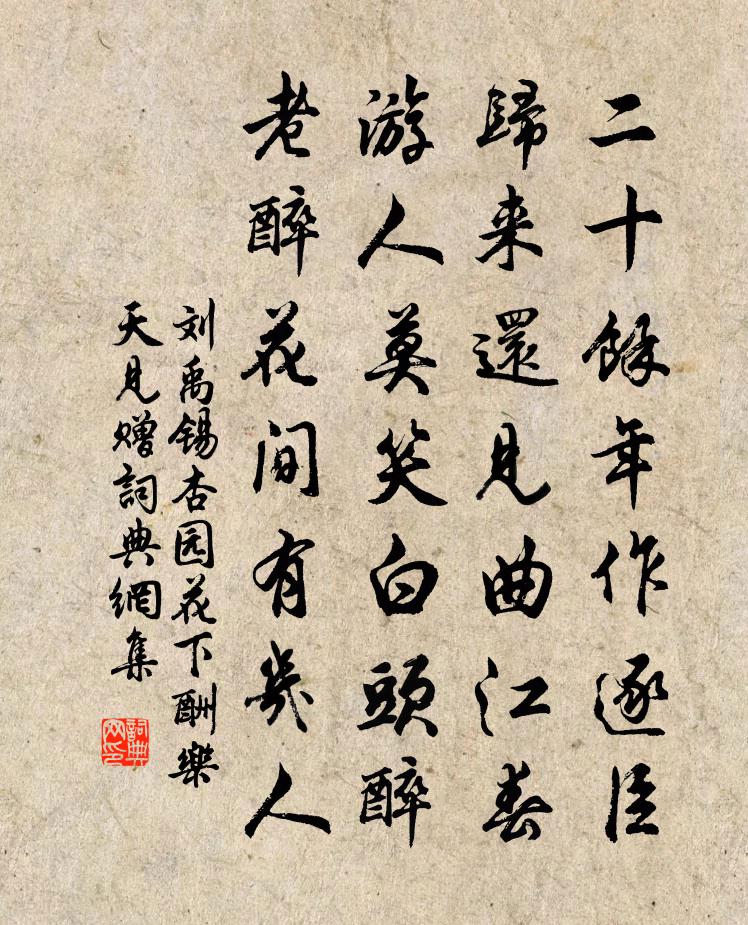 二十餘年作逐臣
歸来還見曲江春
游人莫笑白頭醉
老醉花間有幾人
刘禹锡杏园花下酬樂
天見赠詞典網集
詞典
网印